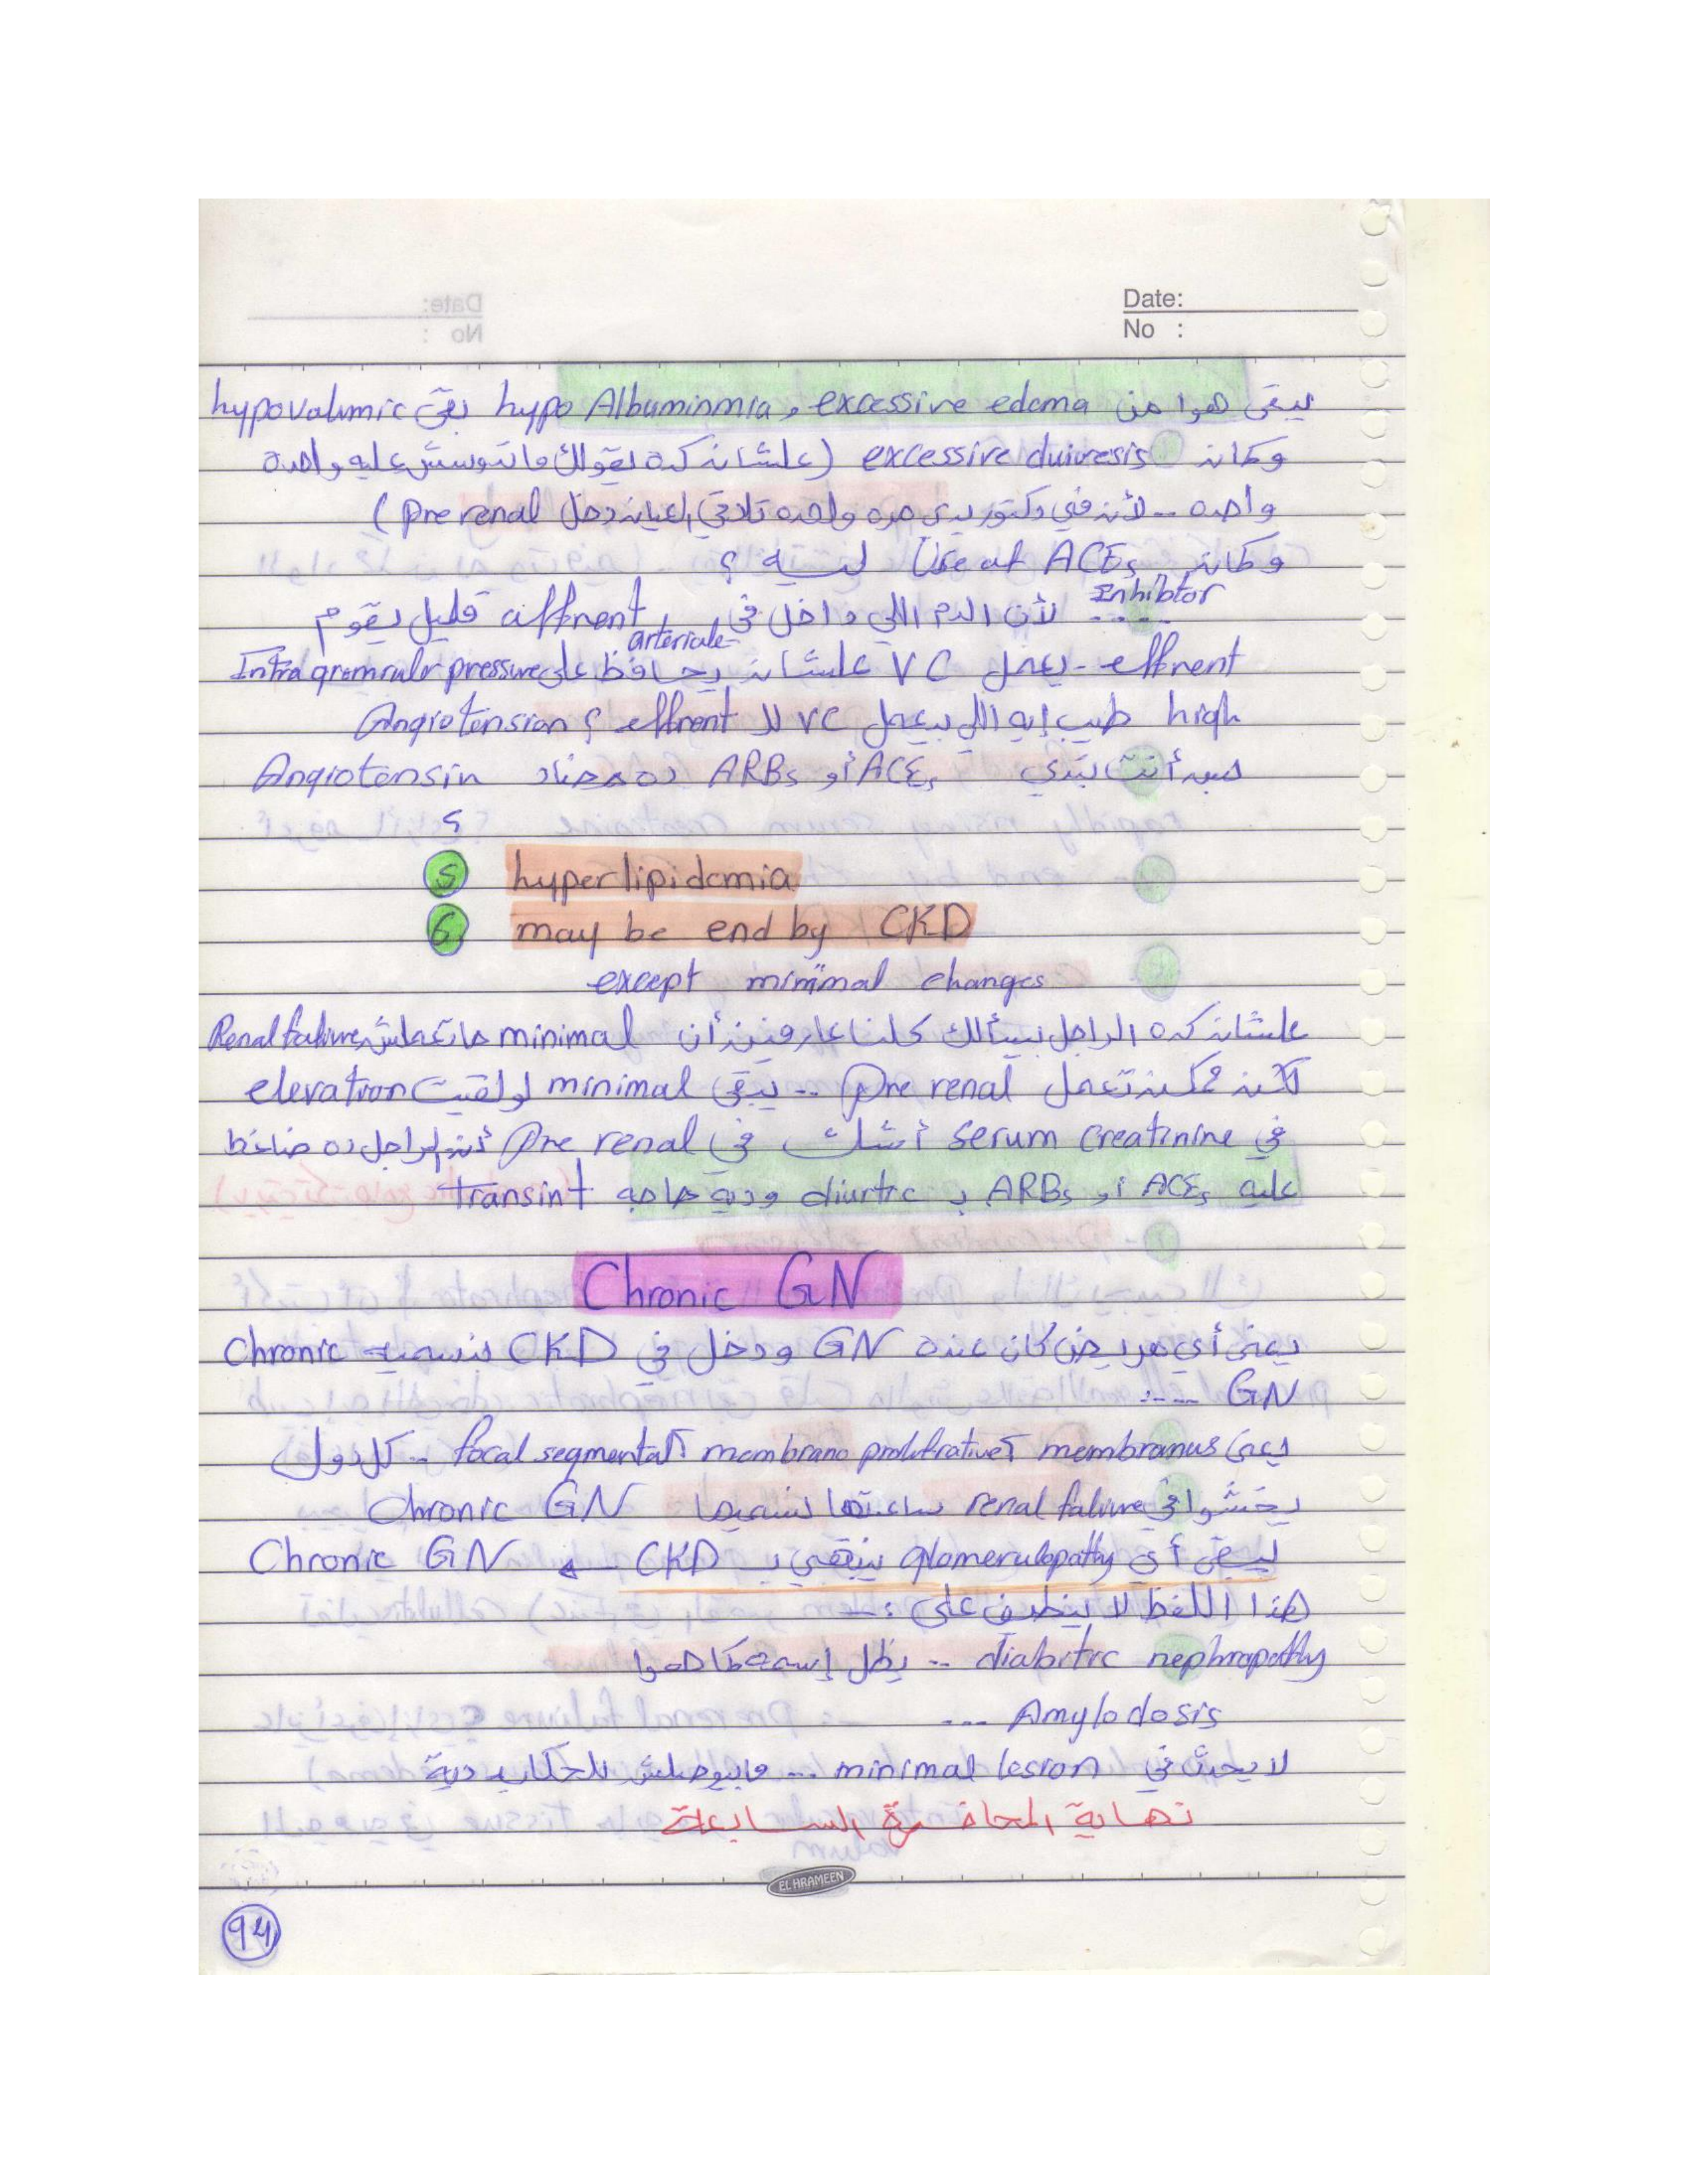 Date:
No :
يبقى هوا من excessive edema و hypo Albuminmia بقى hypovalumic
وكانه excessive duiuresis (علشانه كده يقولك ماتدوسش عليه واحده
واحده .. لأنه في دكتور يدى مره واحده تلاقي العيانه دخل Pre renal)
وكانه Use of ACEs ليه ؟
Inhibtor
..... لأن الدم اللي داخل في affrent قليل يقوم
arteriale
effrent - يعمل VC علشانه يحافظ على Intra gromrulr pressure
high طيب إيه اللي بيعمل VC لل effrent ؟ Angiotension
أنت بتدي ACEs أو ARBs ده مضاد Angiotensin
؟
5 hyperlipidemia
6 may be end by CKD
except minimal changes
علشانه كده الراجل بيسألك كلنا عارفينه أن minimal ماتعملش Renal faliure
لكنه ممكنه تعمل Pre renal .. يبقى minimal لو لقيت elevation
في serum creatinine أشك في Pre renal أنه الراجل ده ضاغط
عليه ACEs أو ARBs و diurtic وديه حاجه transint
Chronic GN
يعني أي مريض كان عنده GN ودخل في CKD نسميه Chronic
GN ....
يعني membranus أ membrano proliftrative أ focal segmental .. كل دول
يخشوا في renal faliure ساعتها نسميها Chronic GN
يبقى أي glomerulopathy ينتهي ب CKD ← Chronic GN
هذا اللفظ لا ينطبق على :-
diabitic nephropathy .. يظل إسمه كما هوا
Amylodosis ...
لا يحدث في minimal lesion ... مابيوصلش للحكايه ديه
نهاية المحاضرة السابعة
EL HRAMEEN
94